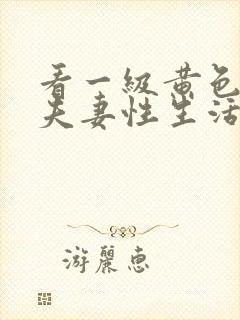 看一級黄色
夫妻性生活
游麗惠